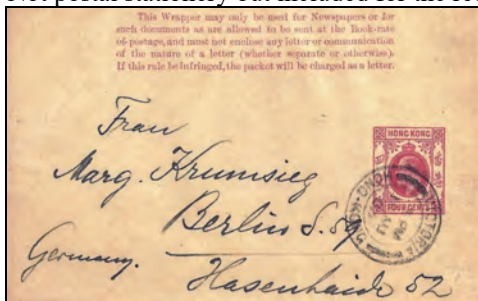 Not postal stationery but included for the
This Wrapper may only be used for Newspapers or for
such documents as are allowed to be sent at the Book-rate
of postage, and must not enclose any letter or communication
of the nature of a letter (whether separate or otherwise).
If this rule be infringed, the packet will be charged as a letter.
Frau
Marg. Krumsieg
Berlin S. 59
Germany.
Hasenhaide 52
HONG KONG
FOUR CENTS
VICTORIA
HONG-KONG